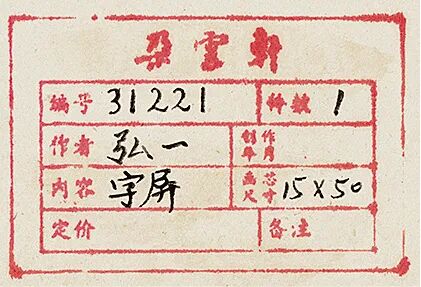 朵雲軒
編号 31221 件數 1
作者 弘一 制作年月
内容 字屏 画芯尺寸 15×50
定价 备注